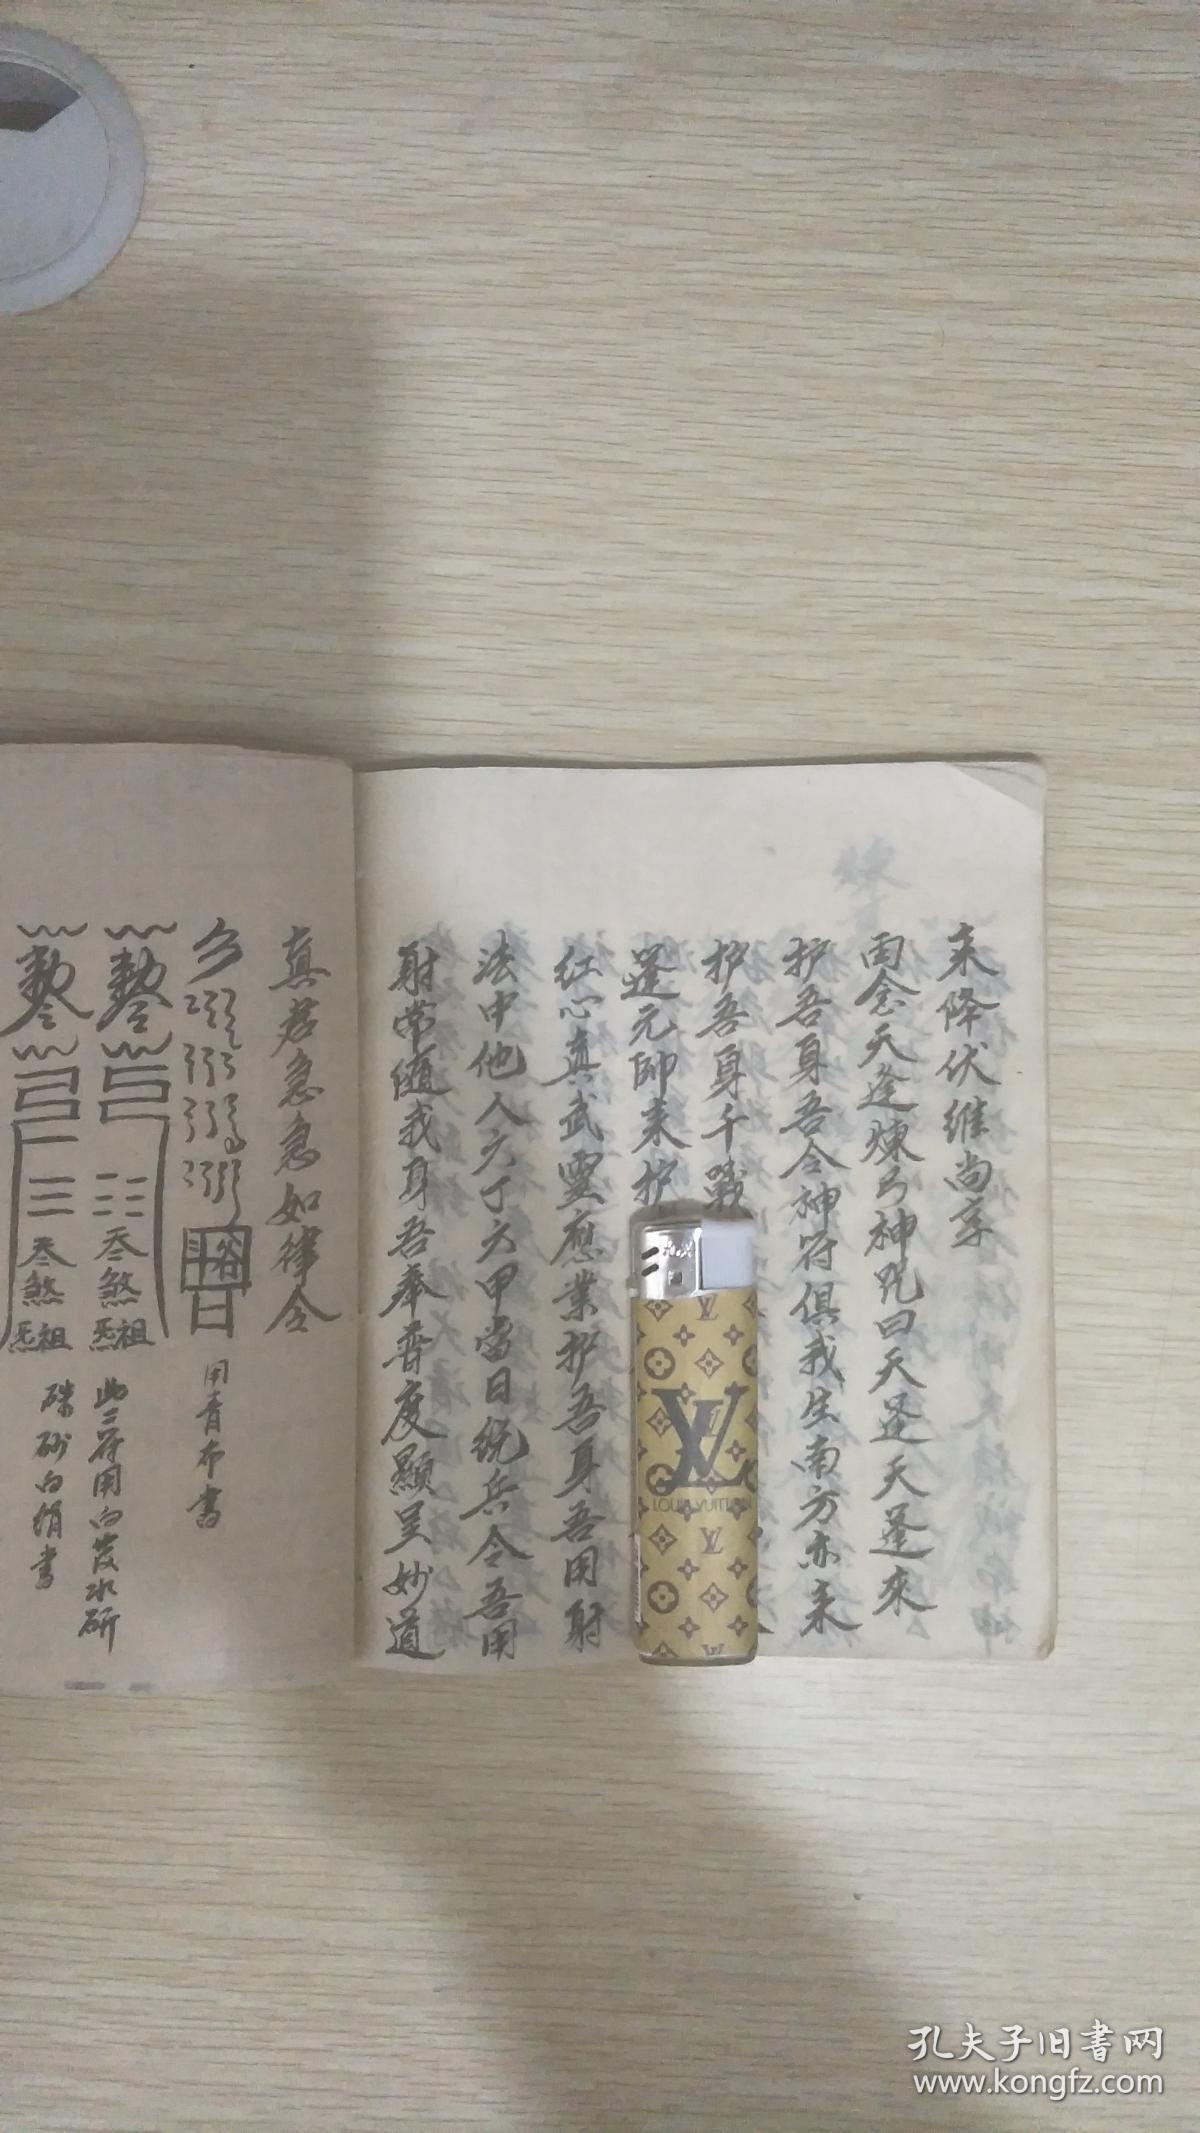 来降伏维尚享
再念天逢煉弓神咒曰天逢天蓬來
护吾身吾令神符俱我生南方亦来
护吾身千戰
蓬元帥来护
红心真武灵應業护吾身吾用射
法中他人六丁六甲當日統兵令吾用
射常隨我身吾奉普度顯呈妙道
真君急急如律令
用青布書
煞
祖
此三符用白芨水研
煞
祖
硃砂白絹書
LOUIS VUITTON
孔夫子旧書网
www.kongfz.com